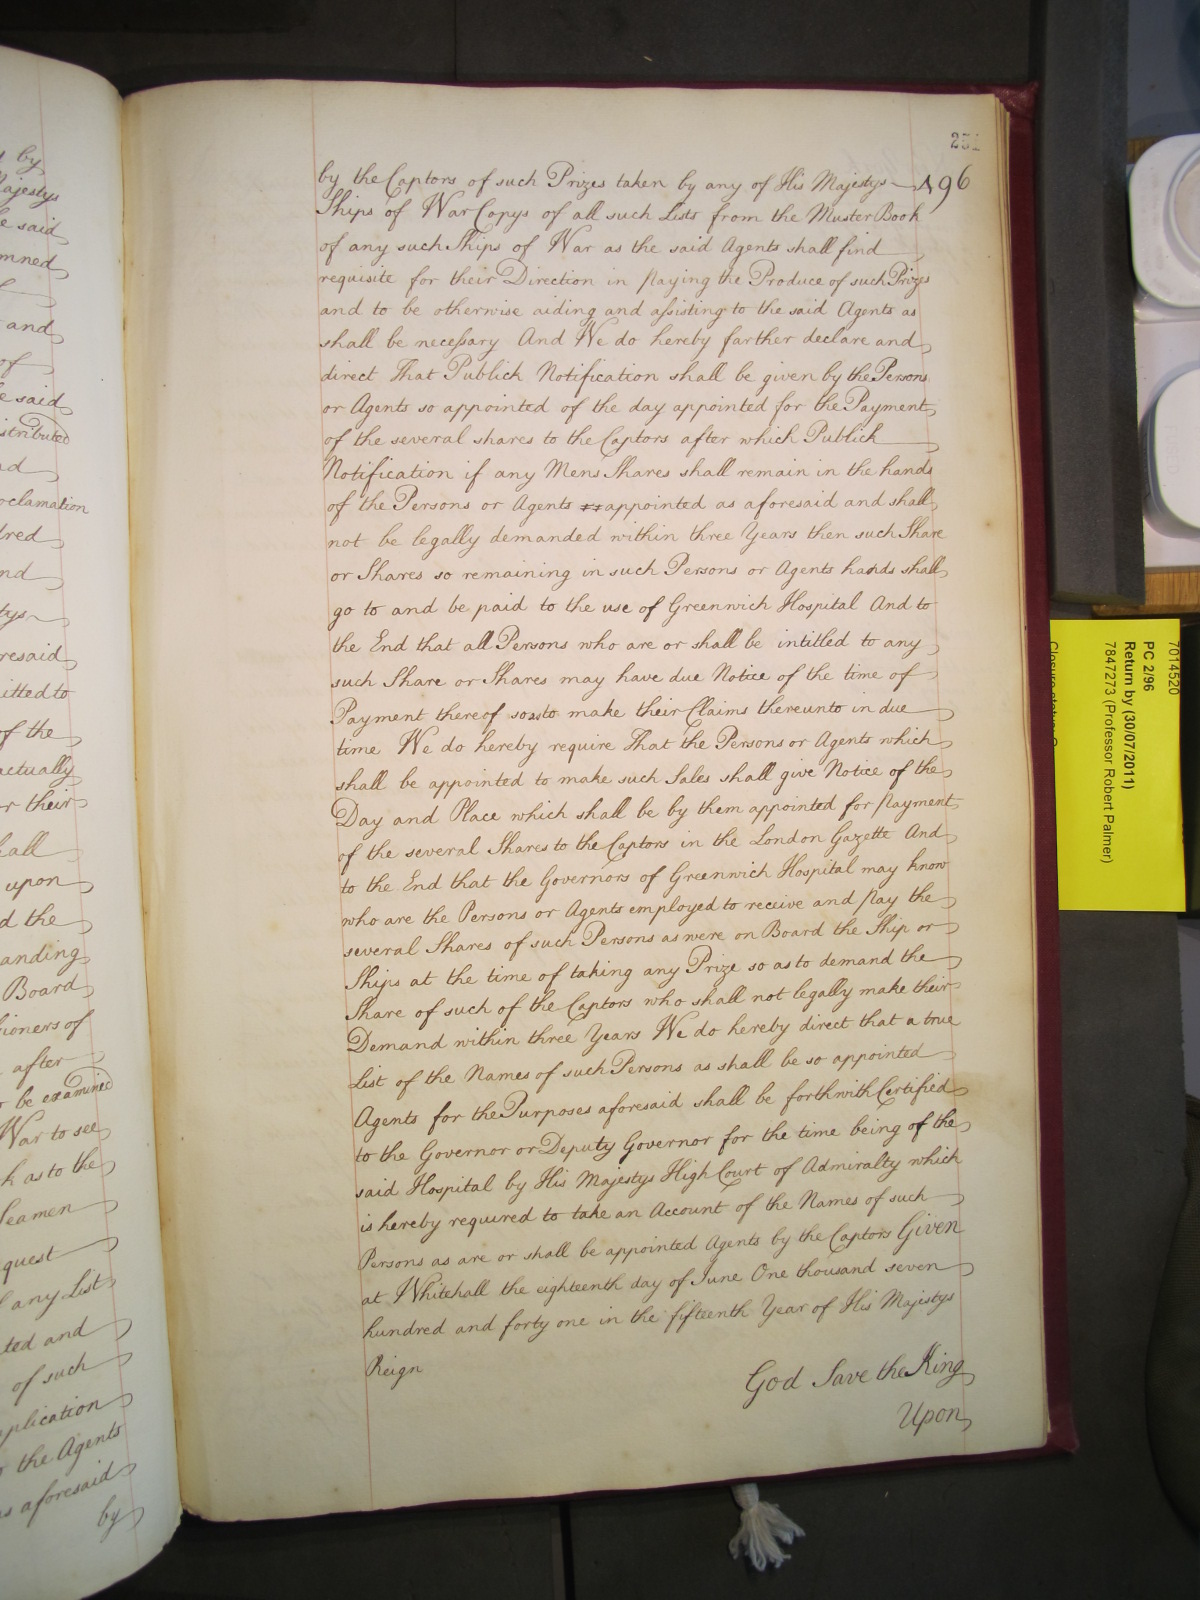 by
Majestys
said
mned
and
of
said
stributed
nd
oclamation
dred
nd
tys
resaid
itted to
of the
actually
r their
all
upon
d the
anding
Board
ioners of
after
be examined
War to see
h as to the
Seamen
quest
any List
ted and
of such
plication
the Agents
as aforesaid
by
496
by the Captors of such Prizes taken by any of His Majestys
Ships of War Copys of all such Lists from the Muster Book
of any such Ships of War as the said Agents shall find
requisite for their Direction in paying the Produce of such Prizes
and to be otherwise aiding and assisting to the said Agents as
shall be necessary And We do hereby farther declare and
direct That Publick Notification shall be given by the Persons
or Agents so appointed of the day appointed for the Payment
of the several shares to the Captors after which Publick
Notification if any Mens Shares shall remain in the hands
of the Persons or Agents appointed as aforesaid and shall
not be legally demanded within three Years then such Share
or Shares so remaining in such Persons or Agents hands shall
go to and be paid to the use of Greenwich Hospital And to
the End that all Persons who are or shall be intitled to any
such Share or Shares may have due Notice of the time of
Payment thereof so as to make their Claims thereunto in due
time We do hereby require That the Persons or Agents which
shall be appointed to make such Sales shall give Notice of the
Day and Place which shall be by them appointed for payment
of the several Shares to the Captors in the London Gazette And
to the End that the Governors of Greenwich Hospital may know
who are the Persons or Agents employed to receive and pay the
several Shares of such Persons as were on Board the Ship or
Ships at the time of taking any Prize so as to demand the
Share of such of the Captors who shall not legally make their
Demand within three Years We do hereby direct that a true
List of the Names of such Persons as shall be so appointed
Agents for the Purposes aforesaid shall be forthwith Certified
to the Governor or Deputy Governor for the time being of the
said Hospital by His Majestys High Court of Admiralty which
is hereby required to take an Account of the Names of such
Persons as are or shall be appointed Agents by the Captors Given
at Whitehall the eighteenth day of June One thousand seven
hundred and forty one in the fifteenth Year of His Majestys
Reign
God Save the King
Upon
7014520
PC 2/96
Return by (30/07/2011)
7847273 (Professor Robert Palmer)